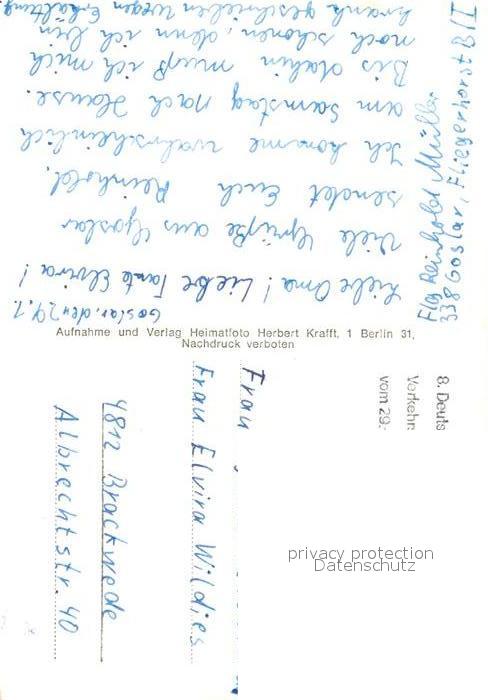 Goslar, den 29.1.
Liebe Oma! Liebe Tante Elvira!
Viele Grüße aus Goslar
sendet Euch Reinhold.
Ich komme wahrscheinlich
am Samstag nach Hause.
Bis dahin muß ich mich
noch schonen, denn ich bin
krank geschrieben wegen Erkältung.
Flg Reinhold Müller
338 Goslar, Fliegerhorst B/I
Aufnahme und Verlag Heimatfoto Herbert Krafft, 1 Berlin 31,
Nachdruck verboten
8. Deuts
Verkehr
vom 29.
Frau
Frau Elvira Wildies
4812 Brackwede
Albrechtstr. 40
privacy protection
Datenschutz